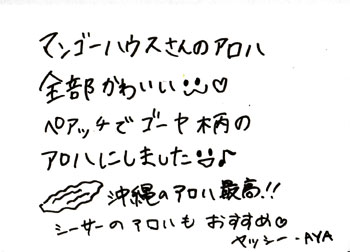 マンゴーハウスさんのアロハ
全部かわいい♡
ペアッチでゴーヤ柄の
アロハにしました♪
沖縄のアロハ最高!!
シーサーのアロハもおすすめ♡
ヤッシー・AYA